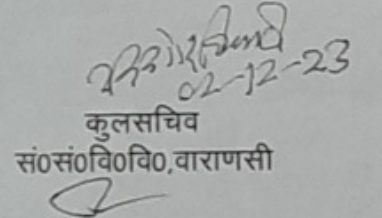 02-12-23
कुलसचिव
सं0सं0वि0वि0,वाराणसी